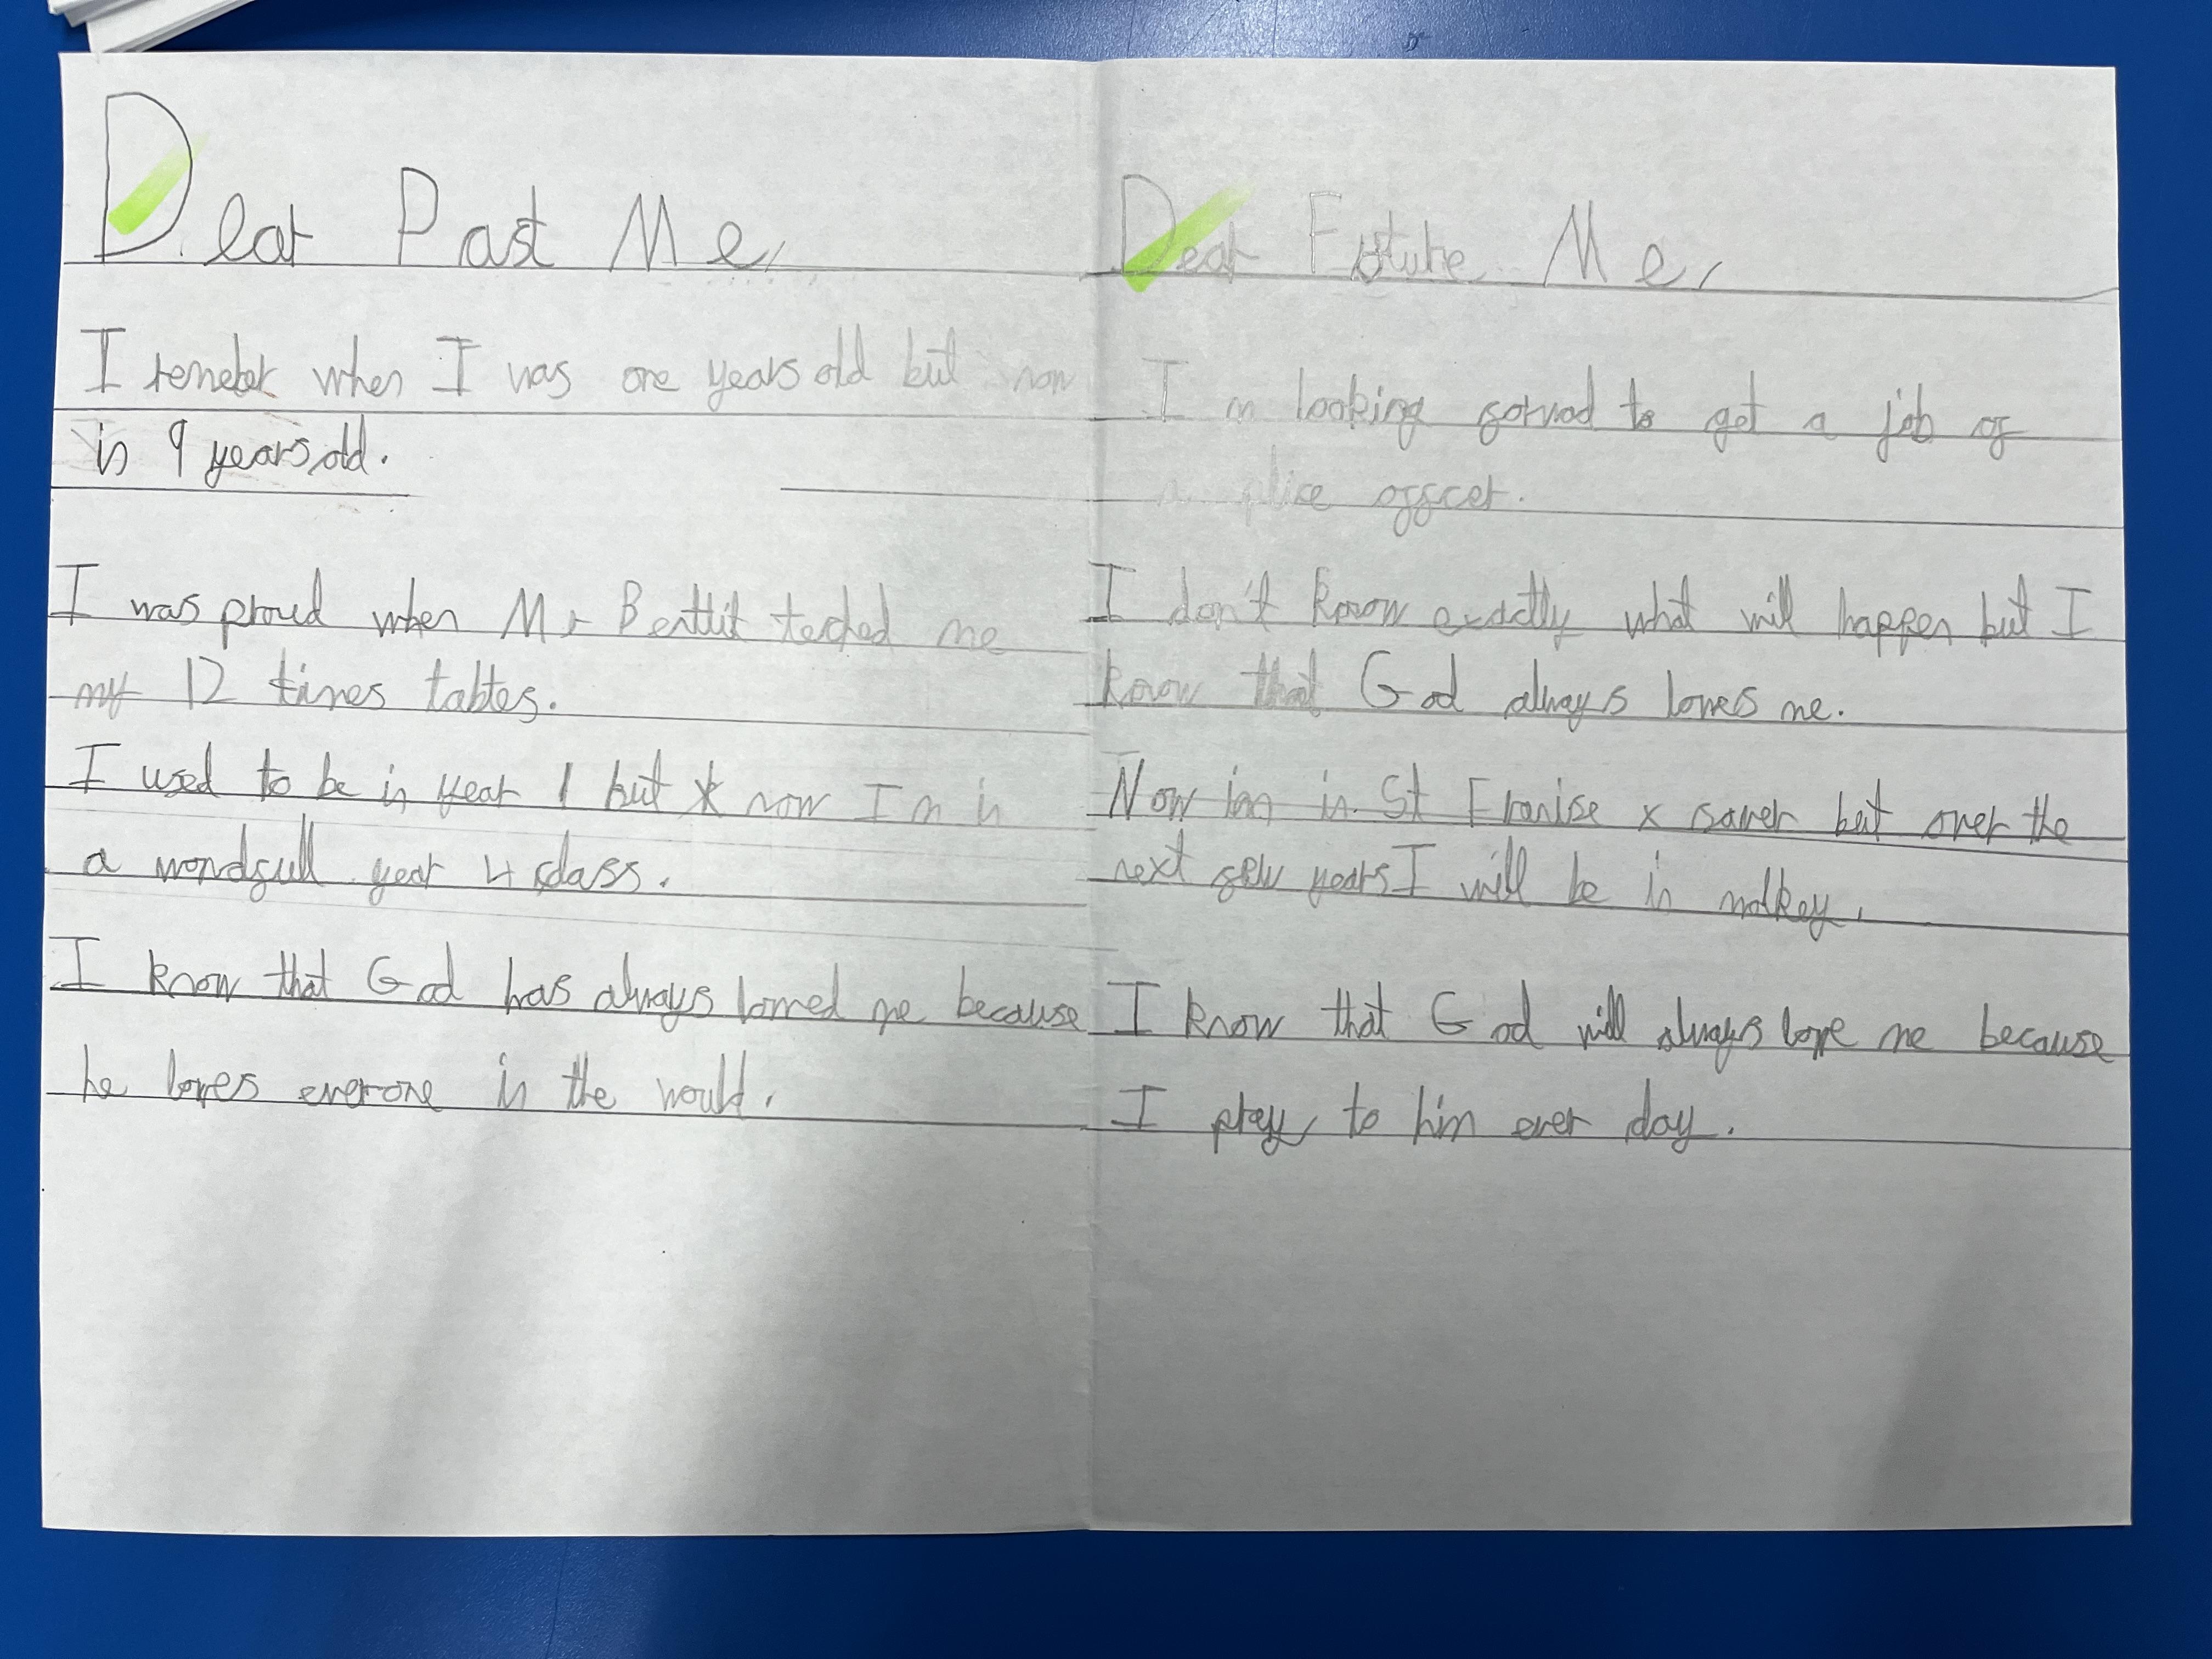 Dear Past Me,
I remeber when I was one years old but now
is 9 years old.
I was proud when Mr Berttit teched me
my 12 times tables.
I used to be in year 1 but now I m in
a wondfull year 4 class.
I know that God has always loved me because
he loves everone in the would.
Dear Future Me,
I m looking forwad to get a job of
a plice offcer.
I don't know exactly what will happen but I
know that God always loves me.
Now im in St Franise x saver but over the
next few years I will be in
I know that God will always love me because
I pray to him ever day.